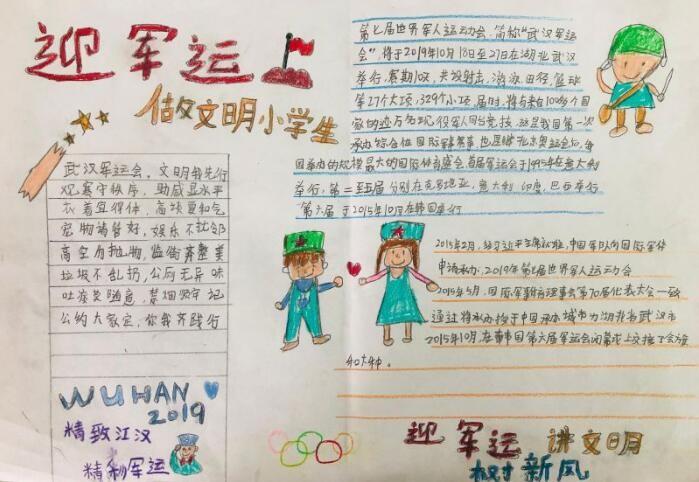 迎军运
做文明小学生
武汉军运会，文明我先行
观赛守秩序，助威显水平
衣着宜得体，高块更和气
宠物请管好，娱乐不扰邻
高空勿抛物，监街齐整美
垃圾不乱扔，公厕无异味
吐痰莫随意，禁烟须牢记
公约大家定，你我齐践行
WUHAN
2019
精致江汉
精彩军运
第七届世界军人运动会，简称“武汉军运
会”，将于2019年10月18日至27日在湖北武汉
举行，赛期10天，共设射击、游泳、田径、篮球
等27个大项，329个小项。届时，将有来自100多个国
家的近万名现役军人同台竞技，这是我国第一次
承办综合性国际军事赛事，也是继北京奥运会后，中
国举办的规模最大的国际体育盛会。首届军运会于1995年在意大利
举行，第二至五届分别在克罗地亚，意大利，印度，巴西举行
第六届于2015年10月在韩国举行
2015年2月，经习近平主席批准，中国军队向国际军体
申请承办，2019年第七届世界军人运动会
2015年5月，国际军事体育理事会第70届代表大会一致
通过将承办授于中国承办城市为湖北省武汉市
2015年10月，在韩国第六届军运会闭幕式上交接了会旗
和大种。
迎军运 讲文明
树新风